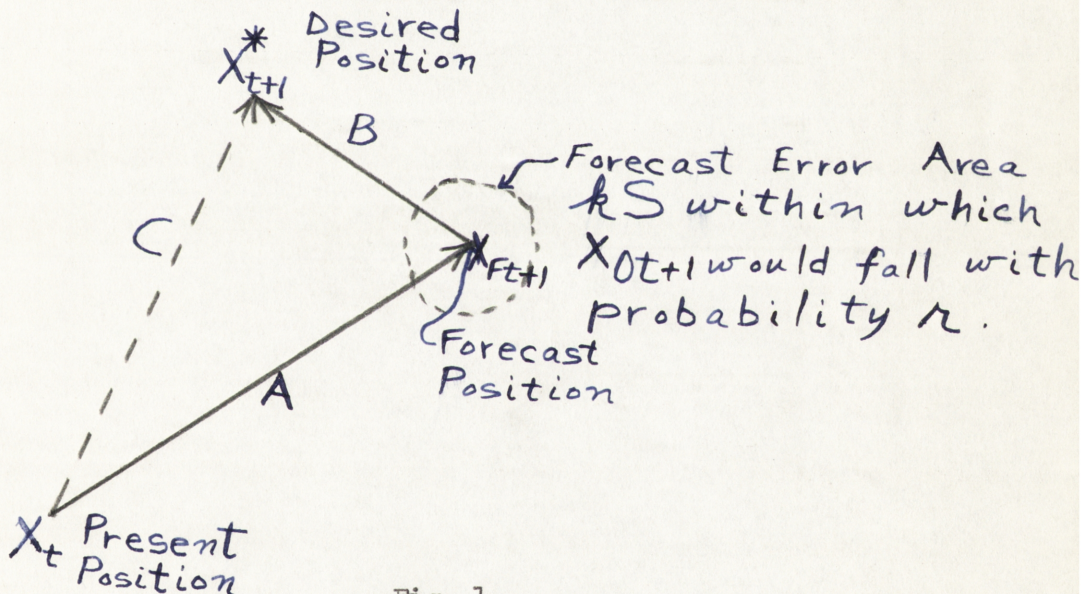 * Desired
Position
X_t+1
B
Forecast Error Area
kS within which
X_0t+1 would fall with
probability r.
C
X_Ft+1
Forecast
Position
A
X_t Present
Position